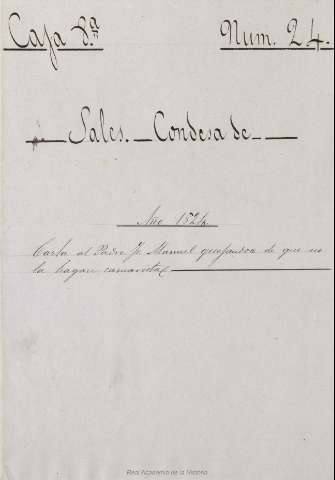 Caja 8.ª Num. 24.
Sales. Condesa de
Año 1824.
Carta al Padre Fr. Manuel quejandose de que no
la hagan camarista
Real Academia de la Historia